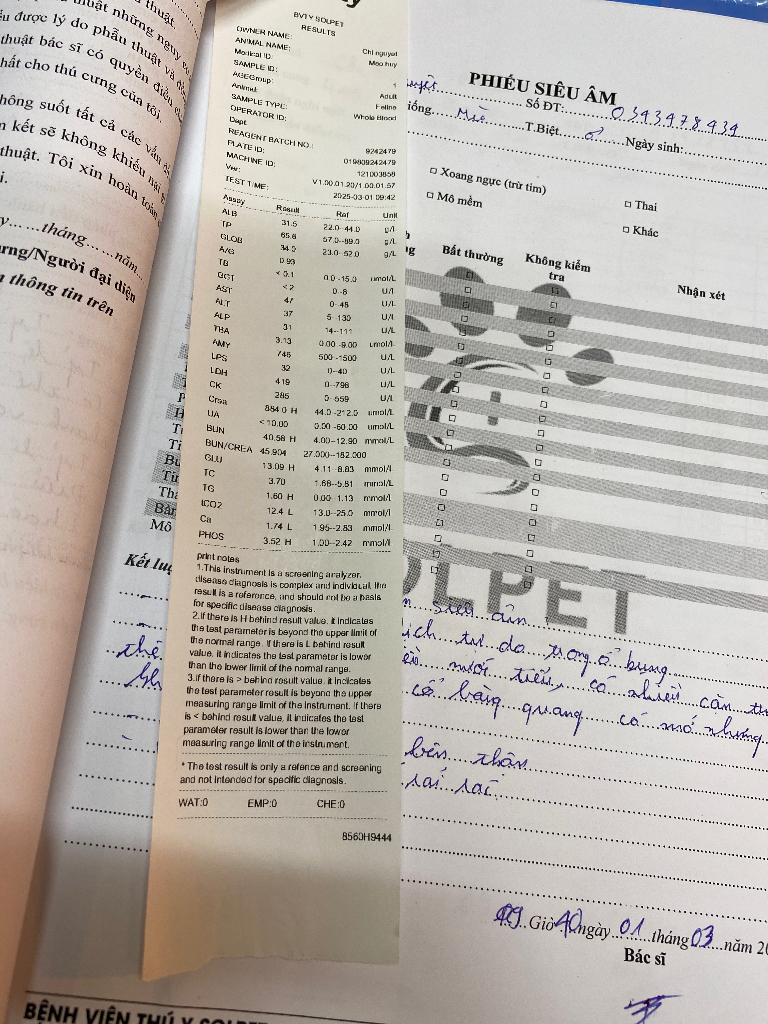 thuật
thuật những nguy
ểu được lý do phẫu thuật và
thuật bác sĩ có quyền điều
hất cho thú cưng của tôi.
hông suốt tất cả các vấn đề
m kết sẽ không khiếu nại
thuật. Tôi xin hoàn toàn
i.
y......tháng......năm...
ưng/Người đại diện
n thông tin trên
BVTY SOLPET
RESULTS
OWNER NAME: Chi nguyet
ANIMAL NAME: Meo huy
Medical ID:
SAMPLE ID: 1
AGEGroup: Adult
Animal: Feline
SAMPLE TYPE: Whole Blood
OPERATOR ID:
Dept.
REAGENT BATCH NO.: 9242479
PLATE ID: 019809242479
MACHINE ID: 121003858
Ver: V1.00.01.20/1.00.01.57
TEST TIME: 2025-03-01 09:42
Assay Result Ref Unit
ALB 31.5 22.0--44.0 g/l
TP 65.8 57.0--89.0 g/L
GLOB 34.3 23.0--52.0 g/L
A/G 0.93
TB < 0.1 0.0--15.0 umol/L
GGT < 2 0--8 U/L
AST 47 0--48 U/L
ALT 37 5--130 U/L
ALP 31 14--111 U/L
TBA 3.13 0.00--9.00 umol/L
AMY 746 500--1500 U/L
LPS 32 0--40 U/L
LDH 419 0--798 U/L
CK 285 0--559 U/L
Crea 884.0 H 44.0--212.0 umol/L
UA < 10.00 0.00--60.00 umol/L
BUN 40.58 H 4.00--12.90 mmol/L
BUN/CREA 45.904 27.000--182.000
GLU 13.09 H 4.11--8.83 mmol/l
TC 3.70 1.68--5.81 mmol/L
TG 1.60 H 0.00--1.13 mmol/L
tCO2 12.4 L 13.0--25.0 mmol/L
Ca 1.74 L 1.95--2.83 mmol/l
PHOS 3.52 H 1.00--2.42 mmol/l
print notes
1.This instrument is a screening analyzer.
disease diagnosis is complex and individual, the
result is a reference, and should not be a basis
for specific disease diagnosis.
2.if there is H behind result value, it indicates
the test parameter is beyond the upper limit of
the normal range. If there is L behind result
value, it indicates the test parameter is lower
than the lower limit of the normal range.
3.if there is > behind result value, it indicates
the test parameter result is beyond the upper
measuring range limit of the instrument. If there
is < behind result value, it indicates the test
parameter result is lower than the lower
measuring range limit of the instrument.
* The test result is only a refence and screening
and not intended for specific diagnosis.
WAT:0 EMP:0 CHE:0
8560H9444
PHIẾU SIÊU ÂM
Số ĐT: 0393478439
iống: Mèo T.Biệt: ♂ Ngày sinh:
□ Xoang ngực (trừ tim) □ Thai
□ Mô mềm □ Khác
Bất thường Không kiểm tra Nhận xét
Mô
Kết lu
siêu âm
ịch tự do trong ổ bụng
nước tiểu, có nhiều cặn
cổ bàng quang có mỏ nhưng
bên thận
rải rác
SOLPET
09 Giờ 40 ngày 01 tháng 03 năm 20
Bác sĩ
BỆNH VIỆN THÚ Y SOLPET